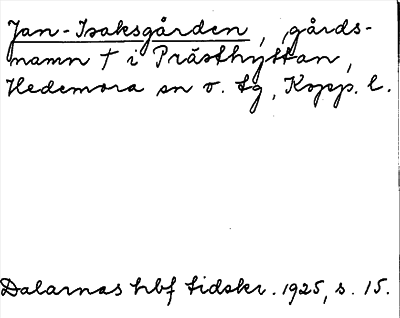 Jan-Isaksgården, gårds-
namn † i Prästhyttan,
Hedemora sn o. tg, Kopp. l.
Dalarnas hbf tidskr. 1925, s. 15.